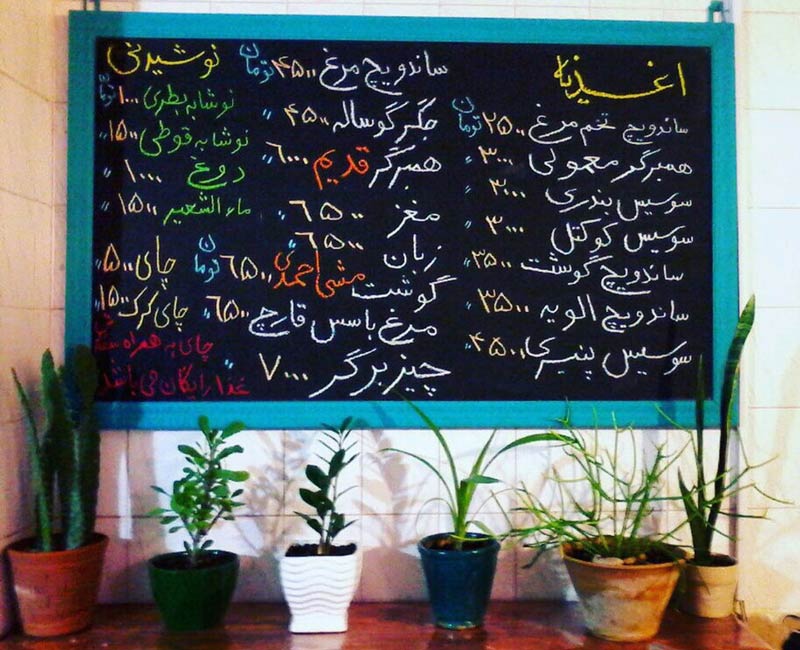 اغذیه
ساندویچ تخم مرغ ۲۵۰۰ تومان
همبرگر معمولی ۳۰۰۰
سوسیس بندری ۳۰۰۰
سوسیس کوکتل ۳۰۰۰
ساندویچ گوشت ۳۵۰۰
ساندویچ الویه ۳۵۰۰
سوسیس پنیری ۴۵۰۰
ساندویچ مرغ ۴۵۰۰ تومان
جگر گوساله ۴۵۰۰
همبرگر قدیم ۶۰۰۰
مغز ۶۵۰۰
زبان ۶۵۰۰
گوشت مشی احمدی ۶۵۰۰ تومان
مرغ با سس قارچ ۶۵۰۰
چیز برگر ۷۰۰۰
نوشیدنی
نوشابه بطری ۱۰۰۰ تومان
نوشابه قوطی ۱۵۰۰
دوغ ۱۰۰۰
ماء الشعیر ۱۵۰۰
چای ۵۰۰
چای کرک ۱۵۰۰
چای به همراه
غذا رایگان می باشد